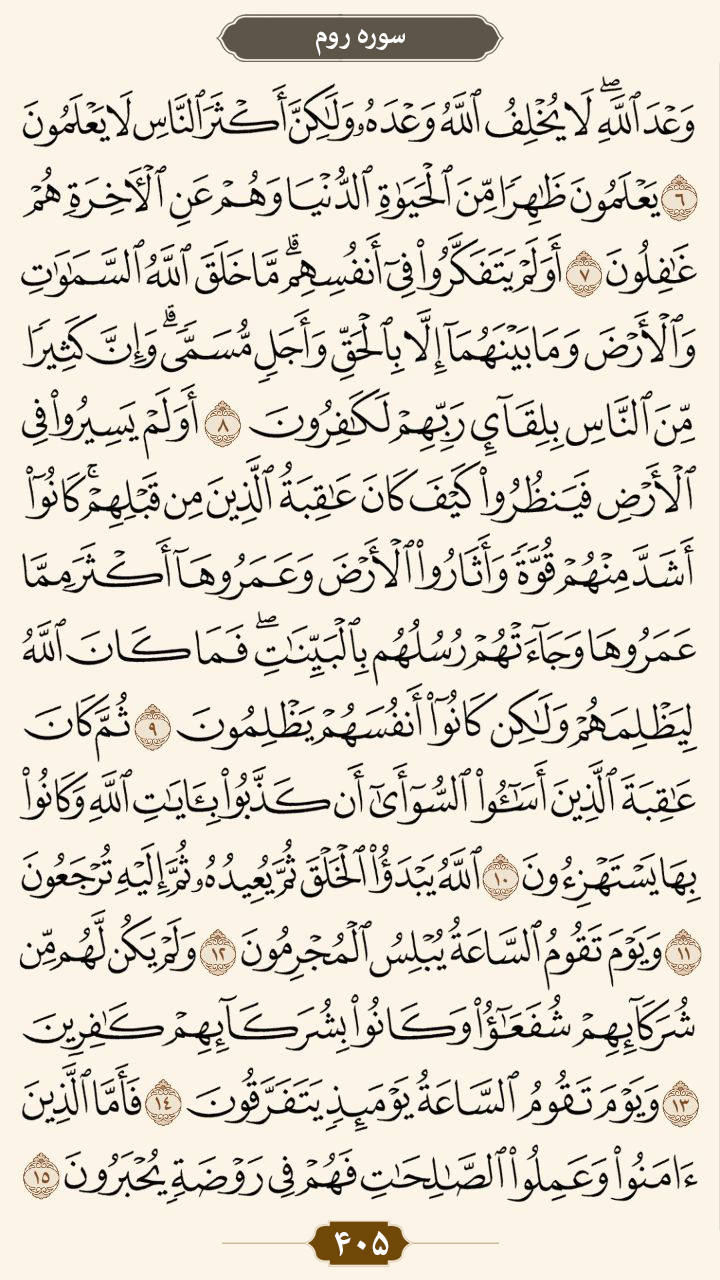 سوره روم
وَعْدَ ٱللَّهِۖ لَا يُخْلِفُ ٱللَّهُ وَعْدَهُۥ وَلَٰكِنَّ أَكْثَرَ ٱلنَّاسِ لَا يَعْلَمُونَ
٦ يَعْلَمُونَ ظَٰهِرًا مِّنَ ٱلْحَيَوٰةِ ٱلدُّنْيَا وَهُمْ عَنِ ٱلْأَخِرَةِ هُمْ
غَٰفِلُونَ ٧ أَوَلَمْ يَتَفَكَّرُوا۟ فِىٓ أَنفُسِهِمۗ مَّا خَلَقَ ٱللَّهُ ٱلسَّمَٰوَٰتِ
وَٱلْأَرْضَ وَمَا بَيْنَهُمَآ إِلَّا بِٱلْحَقِّ وَأَجَلٍ مُّسَمًّىۗ وَإِنَّ كَثِيرًا
مِّنَ ٱلنَّاسِ بِلِقَآيِٕ رَبِّهِمْ لَكَٰفِرُونَ ٨ أَوَلَمْ يَسِيرُوا۟ فِى
ٱلْأَرْضِ فَيَنظُرُوا۟ كَيْفَ كَانَ عَٰقِبَةُ ٱلَّذِينَ مِن قَبْلِهِمْۚ كَانُوٓا۟
أَشَدَّ مِنْهُمْ قُوَّةً وَأَثَارُوا۟ ٱلْأَرْضَ وَعَمَرُوهَآ أَكْثَرَ مِمَّا
عَمَرُوهَا وَجَآءَتْهُمْ رُسُلُهُم بِٱلْبَيِّنَٰتِۖ فَمَا كَانَ ٱللَّهُ
لِيَظْلِمَهُمْ وَلَٰكِن كَانُوٓا۟ أَنفُسَهُمْ يَظْلِمُونَ ٩ ثُمَّ كَانَ
عَٰقِبَةَ ٱلَّذِينَ أَسَٰٓـُٔوا۟ ٱلسُّوٓأَىٰٓ أَن كَذَّبُوا۟ بِـَٔايَٰتِ ٱللَّهِ وَكَانُوا۟
بِهَا يَسْتَهْزِءُونَ ١٠ ٱللَّهُ يَبْدَؤُا۟ ٱلْخَلْقَ ثُمَّ يُعِيدُهُۥ ثُمَّ إِلَيْهِ تُرْجَعُونَ
١١ وَيَوْمَ تَقُومُ ٱلسَّاعَةُ يُبْلِسُ ٱلْمُجْرِمُونَ ١٢ وَلَمْ يَكُن لَّهُم مِّن
شُرَكَآئِهِمْ شُفَعَٰٓؤُا۟ وَكَانُوا۟ بِشُرَكَآئِهِمْ كَٰفِرِينَ
١٣ وَيَوْمَ تَقُومُ ٱلسَّاعَةُ يَوْمَئِذٍ يَتَفَرَّقُونَ ١٤ فَأَمَّا ٱلَّذِينَ
ءَامَنُوا۟ وَعَمِلُوا۟ ٱلصَّٰلِحَٰتِ فَهُمْ فِى رَوْضَةٍ يُحْبَرُونَ ١٥
۴۰۵